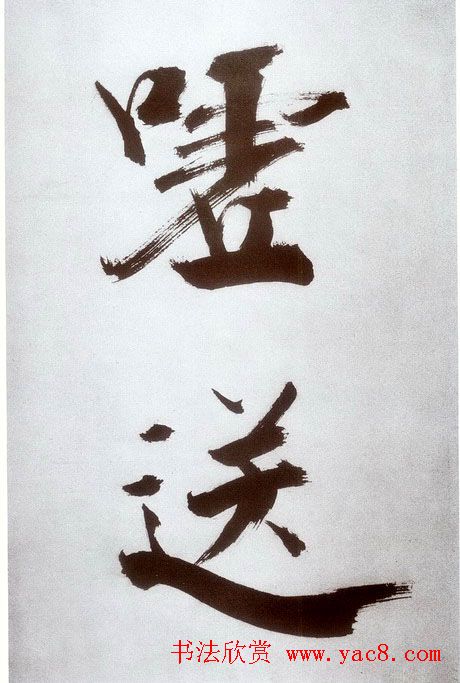 嘘
送
书法欣赏 www.yac8.com